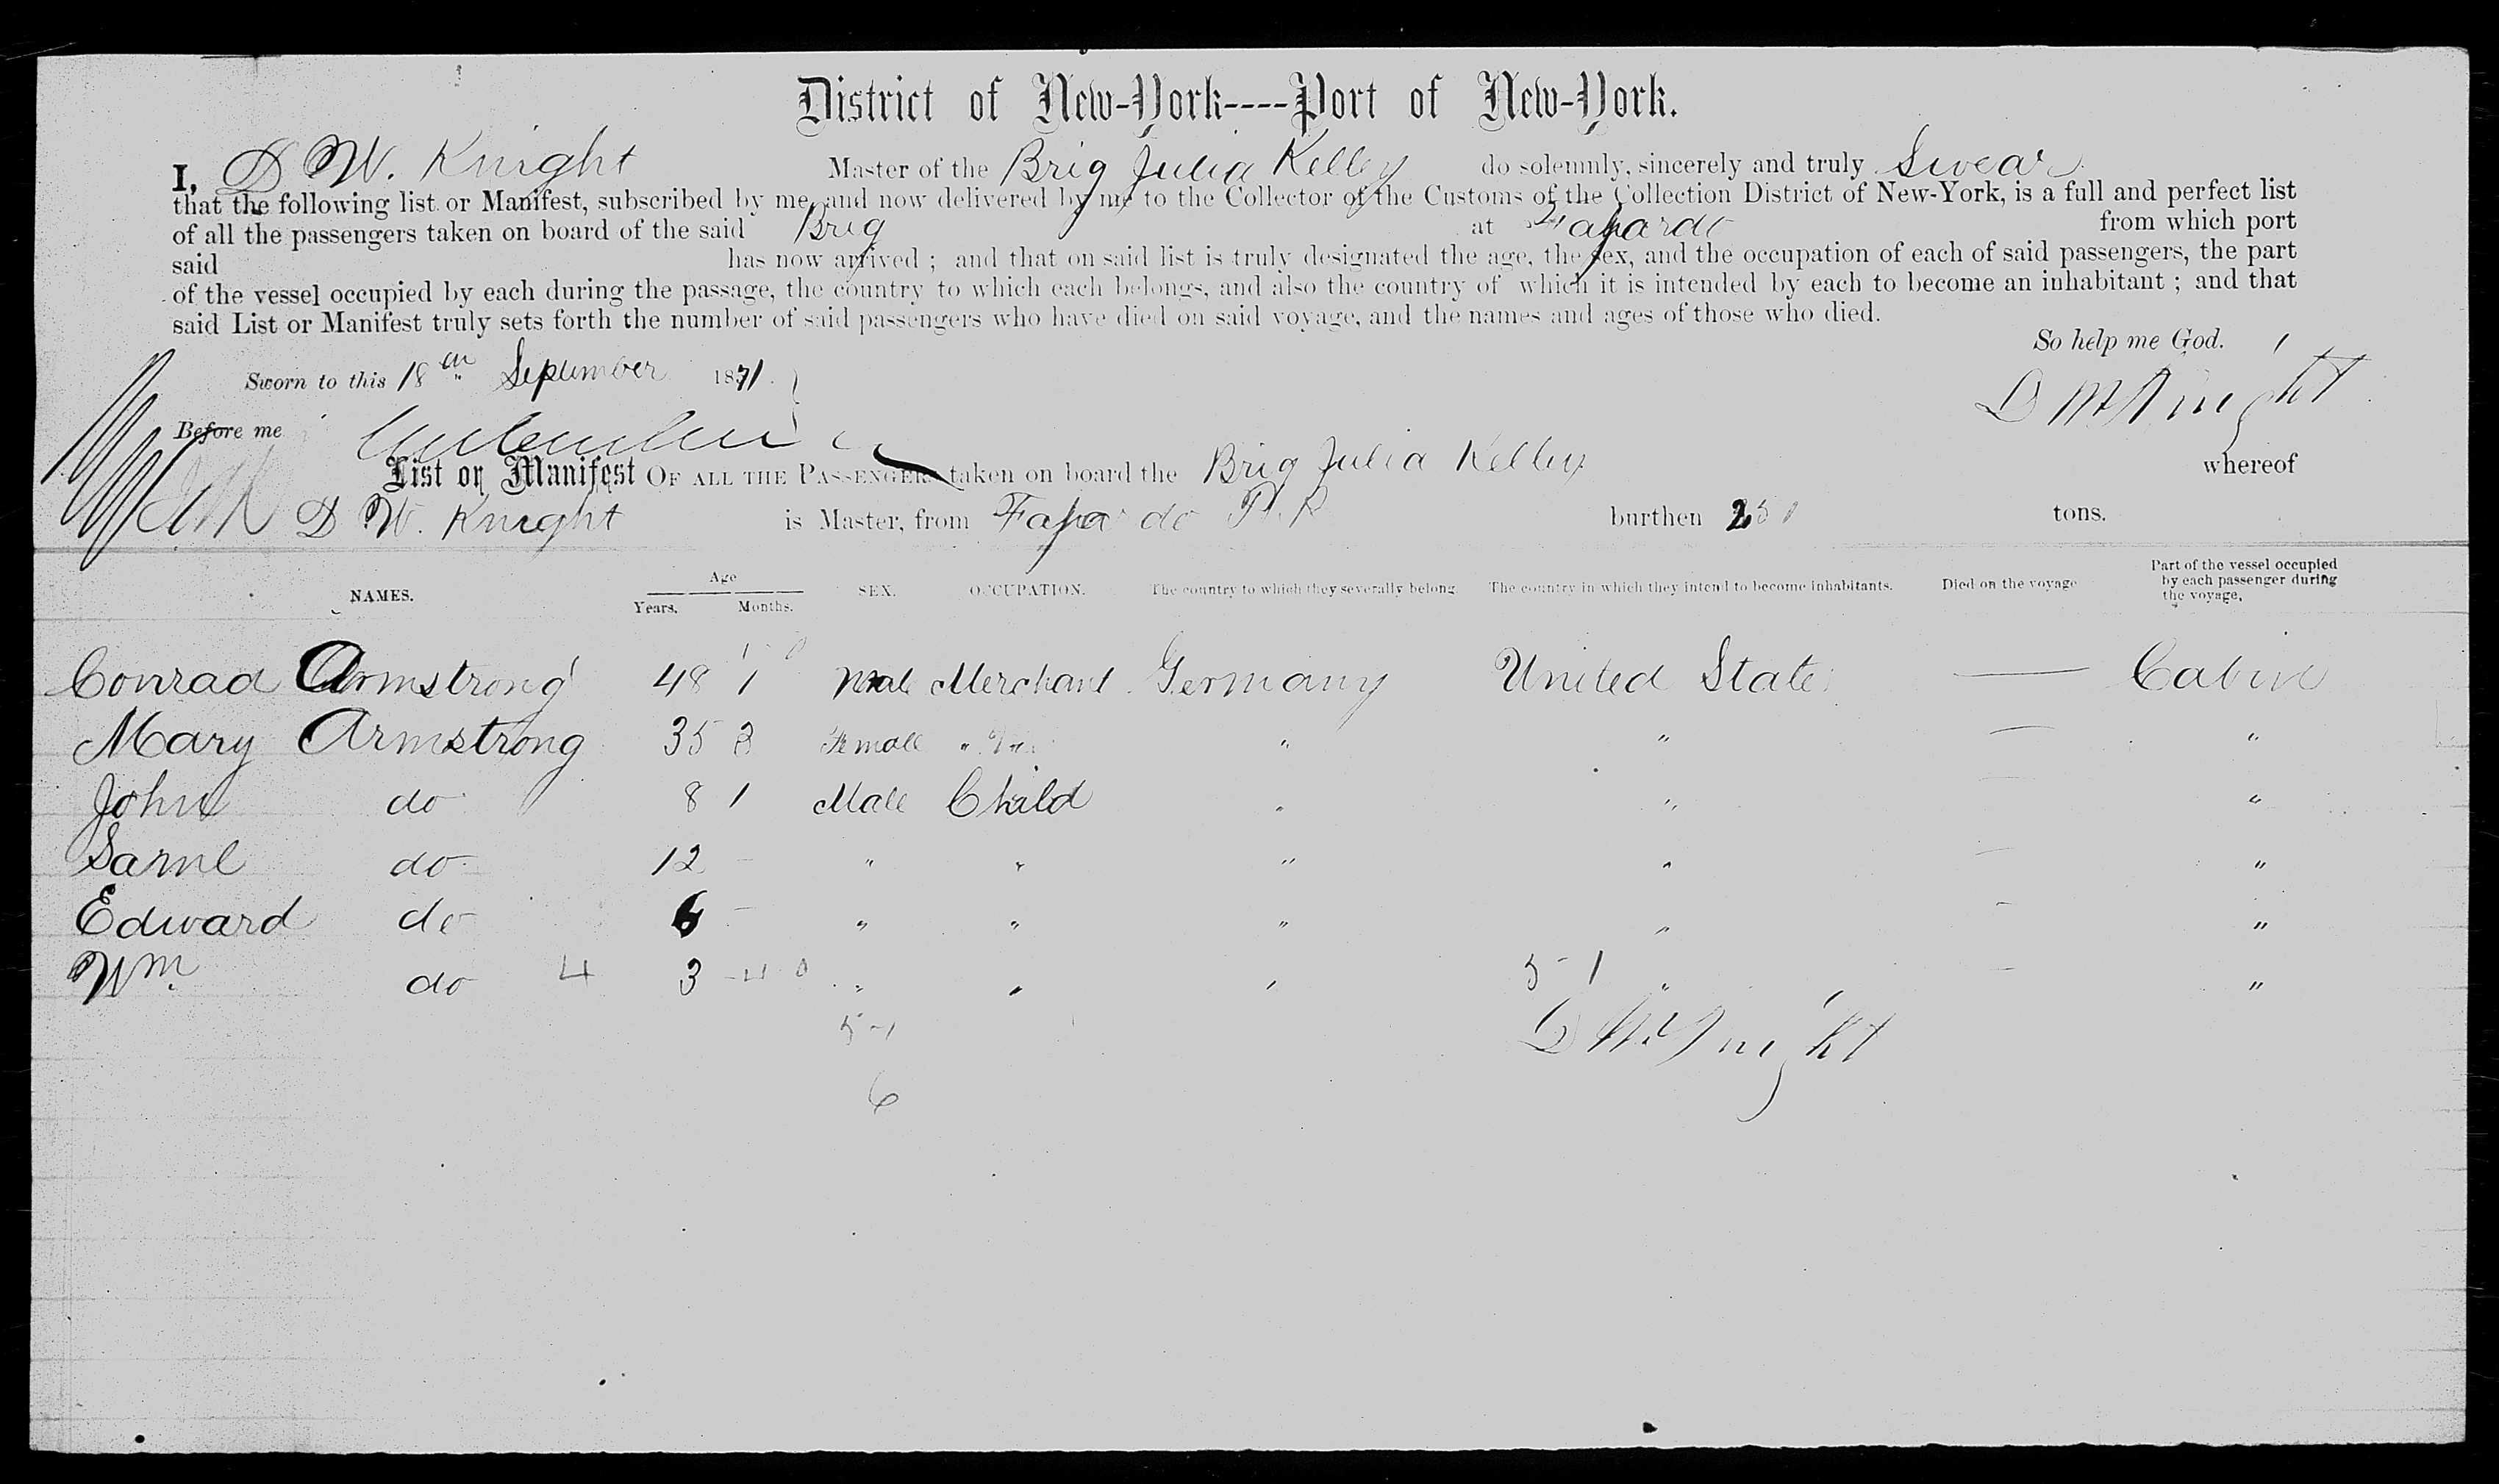 District of New-York----Port of New-York.
I, D W. Knight Master of the Brig Julia Kelley do solemnly, sincerely and truly Swear
that the following list or Manifest, subscribed by me and now delivered by me to the Collector of the Customs of the Collection District of New-York, is a full and perfect list
of all the passengers taken on board of the said Brig at Fahardo from which port
said has now arrived ; and that on said list is truly designated the age, the sex, and the occupation of each of said passengers, the part
of the vessel occupied by each during the passage, the country to which each belongs, and also the country of which it is intended by each to become an inhabitant ; and that
said List or Manifest truly sets forth the number of said passengers who have died on said voyage, and the names and ages of those who died.
So help me God.
Sworn to this 18th September 1871.
D W Knight
Before me
List or Manifest OF ALL THE PASSENGERS taken on board the Brig Julia Kelley whereof
D W. Knight is Master, from Fahardo P. R burthen 251 tons.
NAMES. Age Years. Months. SEX. OCCUPATION. The country to which they severally belong. The country in which they intend to become inhabitants. Died on the voyage Part of the vessel occupied by each passenger during the voyage.
Conrad Armstrong 48 1 Male Merchant Germany United States — Cabin
Mary Armstrong 35 3 Female " " " — "
John do 8 1 Male Child " " — "
Saml do 12 — " " " " — "
Edward do 6 — " " " " — "
Wm. do 4 3 — " " " 5-1 " — "
5-1
D W Knight
6